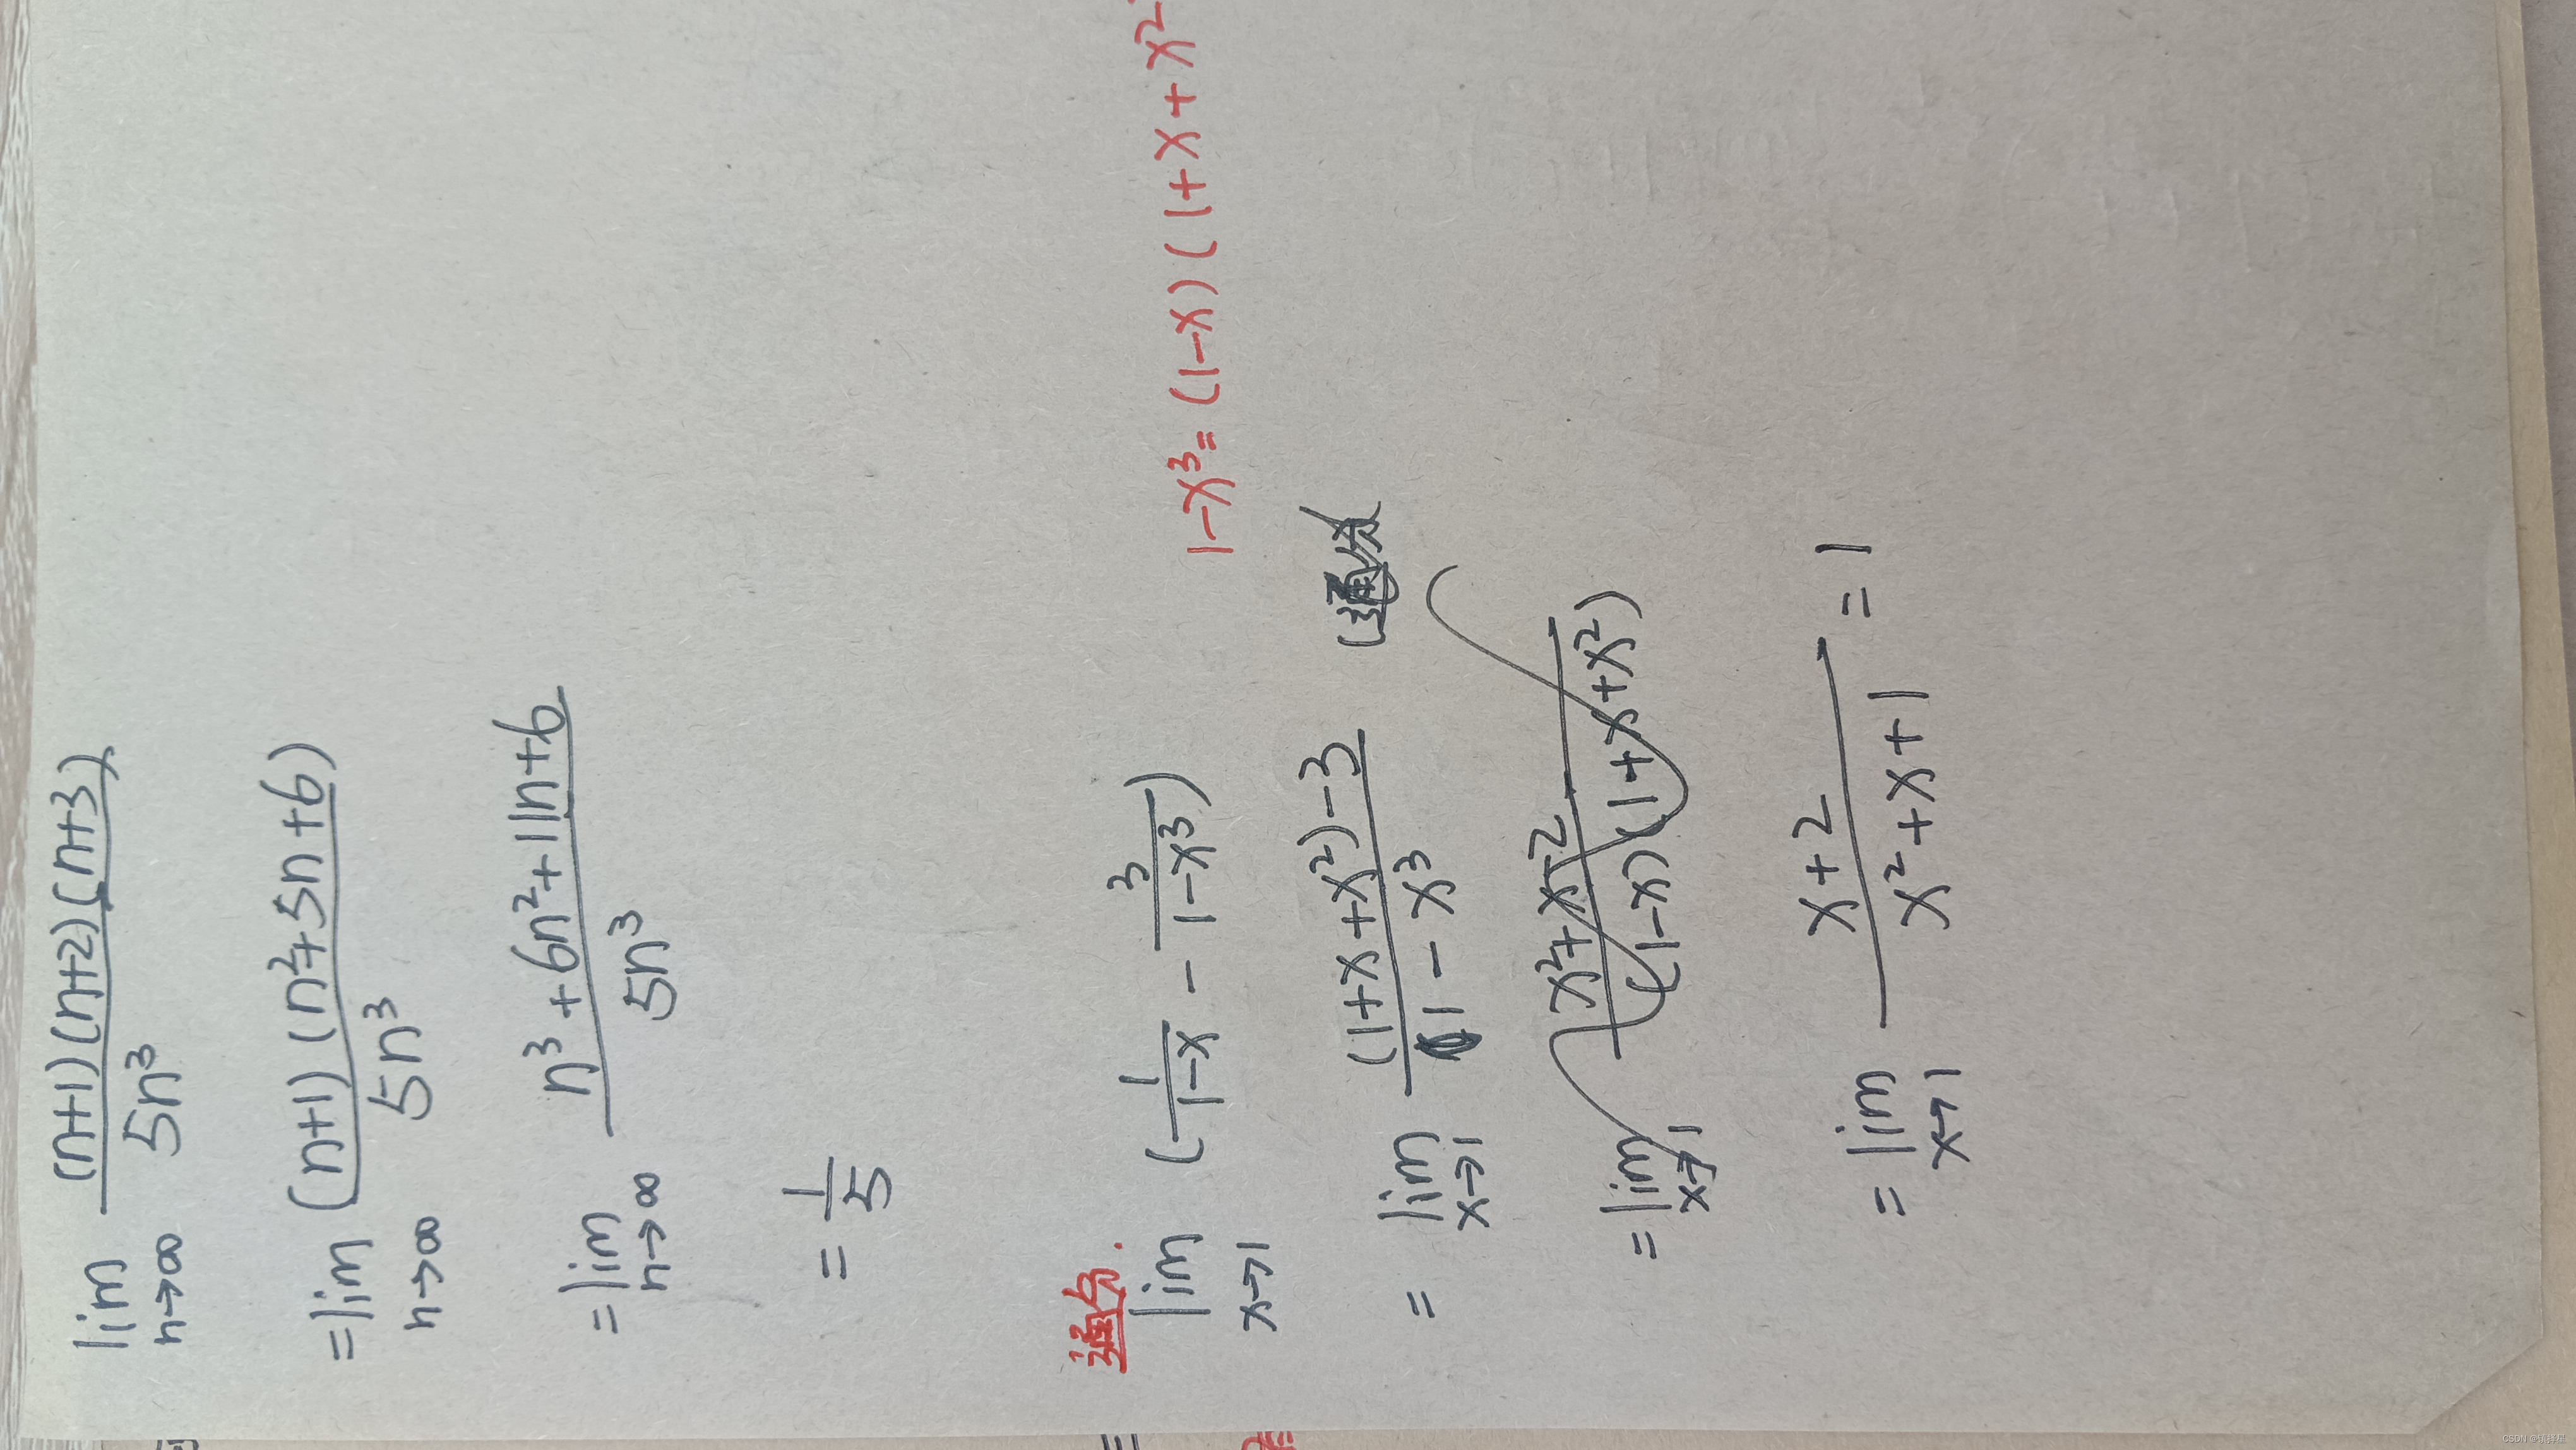 lim n→∞ (n+1)(n+2)(n+3) / 5n³
= lim n→∞ (n+1)(n²+5n+6) / 5n³
= lim n→∞ n³+6n²+11n+6 / 5n³
= 1/5
通分.
1-x³=(1-x)(1+x+x²
lim x→1 (1/1-x - 3/1-x³)
= lim x→1 (1+x+x²)-3 / 1-x³ (通分
= lim x→1 x²+x-2 / (1-x)(1+x+x²)
= lim x→1 x+2 / x²+x+1 = 1